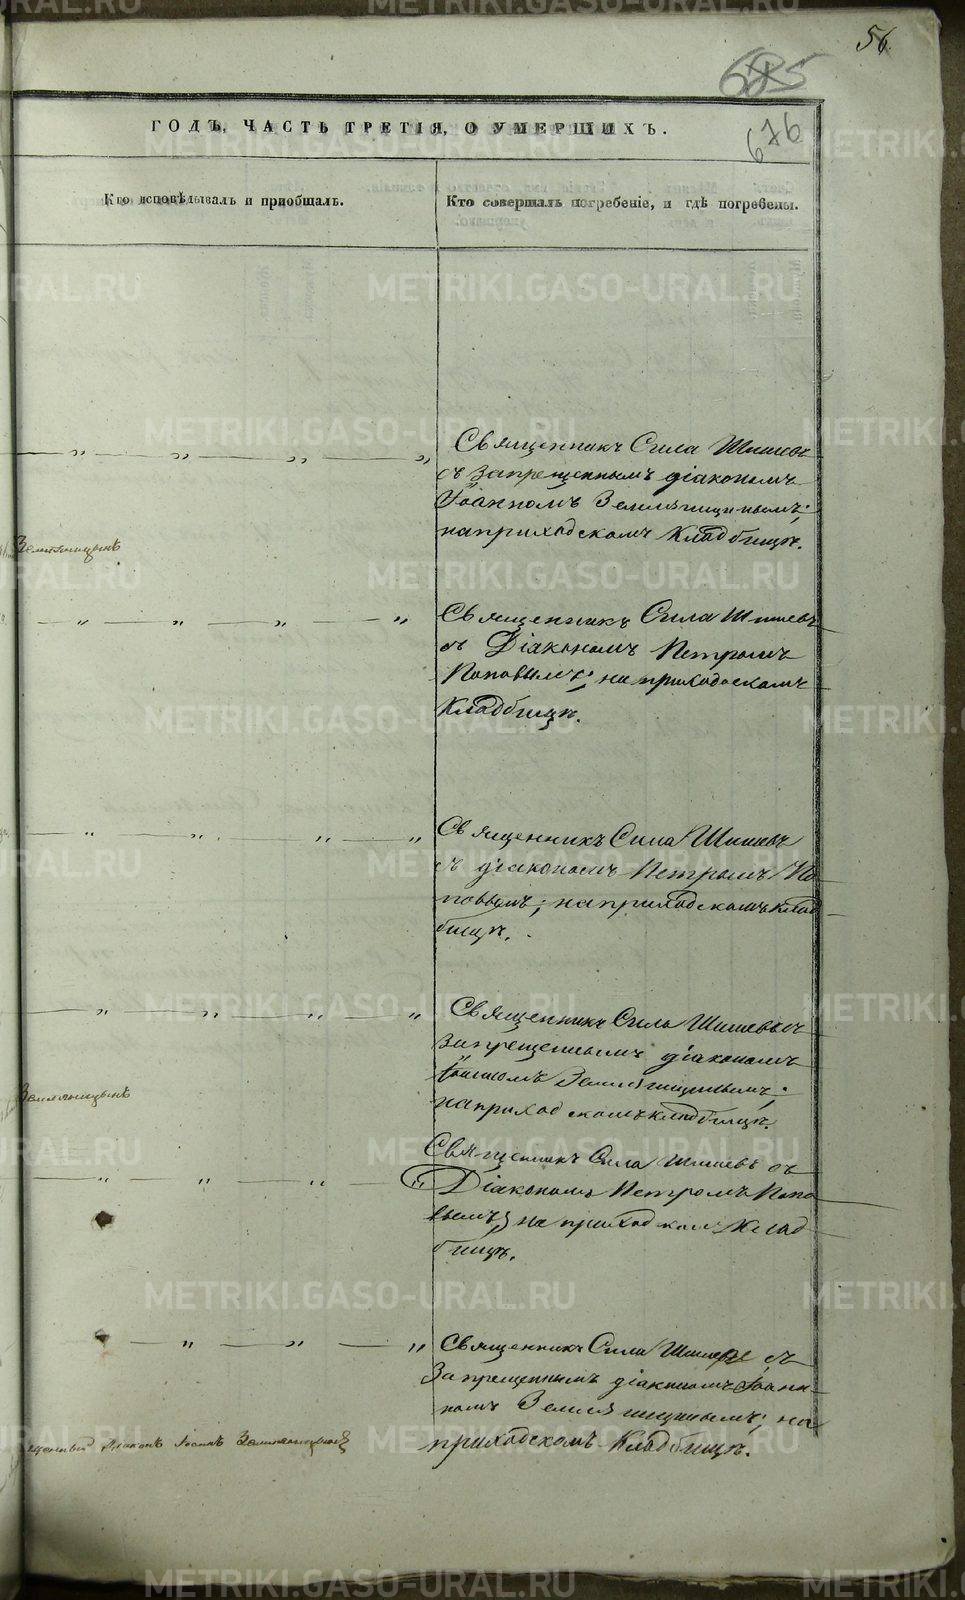 56.
685
676
ГОДЪ, ЧАСТЬ ТРЕТІЯ, О УМЕРШИХЪ.
Кто исповѣдывалъ и приобщалъ.
Кто совершалъ погребеніе, и гдѣ погребены.
Священникъ Сила Шишевъ
съ запрещеннымъ діакономъ
Іоанномъ Земляницинымъ;
на приходскомъ кладбищѣ.
Земляницынъ
Священникъ Сила Шишевъ
съ Діакономъ Петромъ
Поповымъ; на приходскомъ
кладбищѣ.
Священникъ Сила Шишевъ
съ діакономъ Петромъ По-
повымъ; на приходскомъ клад-
бищѣ.
Священникъ Сила Шишевъ съ
запрещеннымъ діакономъ
Іоанномъ Земляницинымъ;
на приходскомъ кладбищѣ.
Земляницынъ
Священникъ Сила Шишевъ съ
Діакономъ Петромъ Попо-
вымъ; на приходскомъ клад-
бищѣ.
Священникъ Сила Шишевъ съ
Запрещеннымъ діакономъ Іоан-
номъ Земляницинымъ; на
приходскомъ кладбищѣ.
Діаконъ Іоаннъ Земляницынъ
METRIKI.GASO-URAL.RU